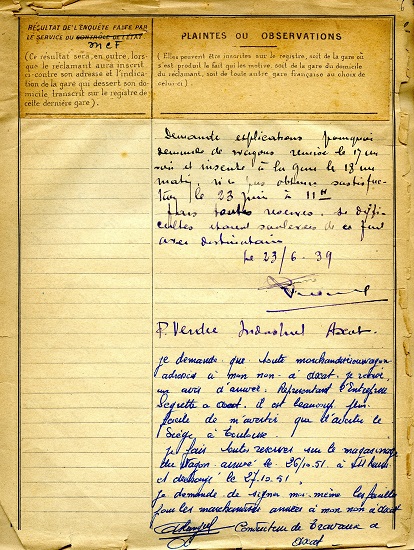 RÉSULTAT DE L'ENQUÊTE FAITE PAR
LE SERVICE DU CONTRÔLE DE L'ÉTAT.
SNCF
(Ce résultat sera, en outre, lors-
que le réclamant aura inscrit
ci-contre son adresse et l'indica-
tion de la gare qui dessert son do-
micile transcrit sur le registre de
cette dernière gare).
PLAINTES OU OBSERVATIONS
(Elles peuvent être inscrites sur le registre, soit de la gare où
s'est produit le fait qui les motive, soit de la gare du domicile
du réclamant, soit de toute autre gare française au choix de
celui-ci).
Demande explications pourquoi
demande de wagons remise le 17 au
soir et inscrite à la gare le 18 au
matin, n'a pas obtenu satisfac-
tion le 23 juin à 11H
Fais toutes réserves, de diffi-
cultés étant soulevées de ce fait
avec destinataire
le 23/6-39
P. Vendre Industriel Axat.
je demande que toute marchandise ou wagon
adressés à mon nom à Axat, je reçoive
un avis d'arrivée. Représentant l'Entreprise
à Axat. il est beaucoup plus
facile de m'avertir que d'avertir le
Siège, à Toulouse.
je fais toutes réserves sur le magasinage
du Wagon arrivé le 26/10.51 à
et déchargé le 27.10.51.
je demande de signer moi-même les feuilles
pour les marchandises arrivées à mon nom à Axat
Conducteur de Travaux à
Axat